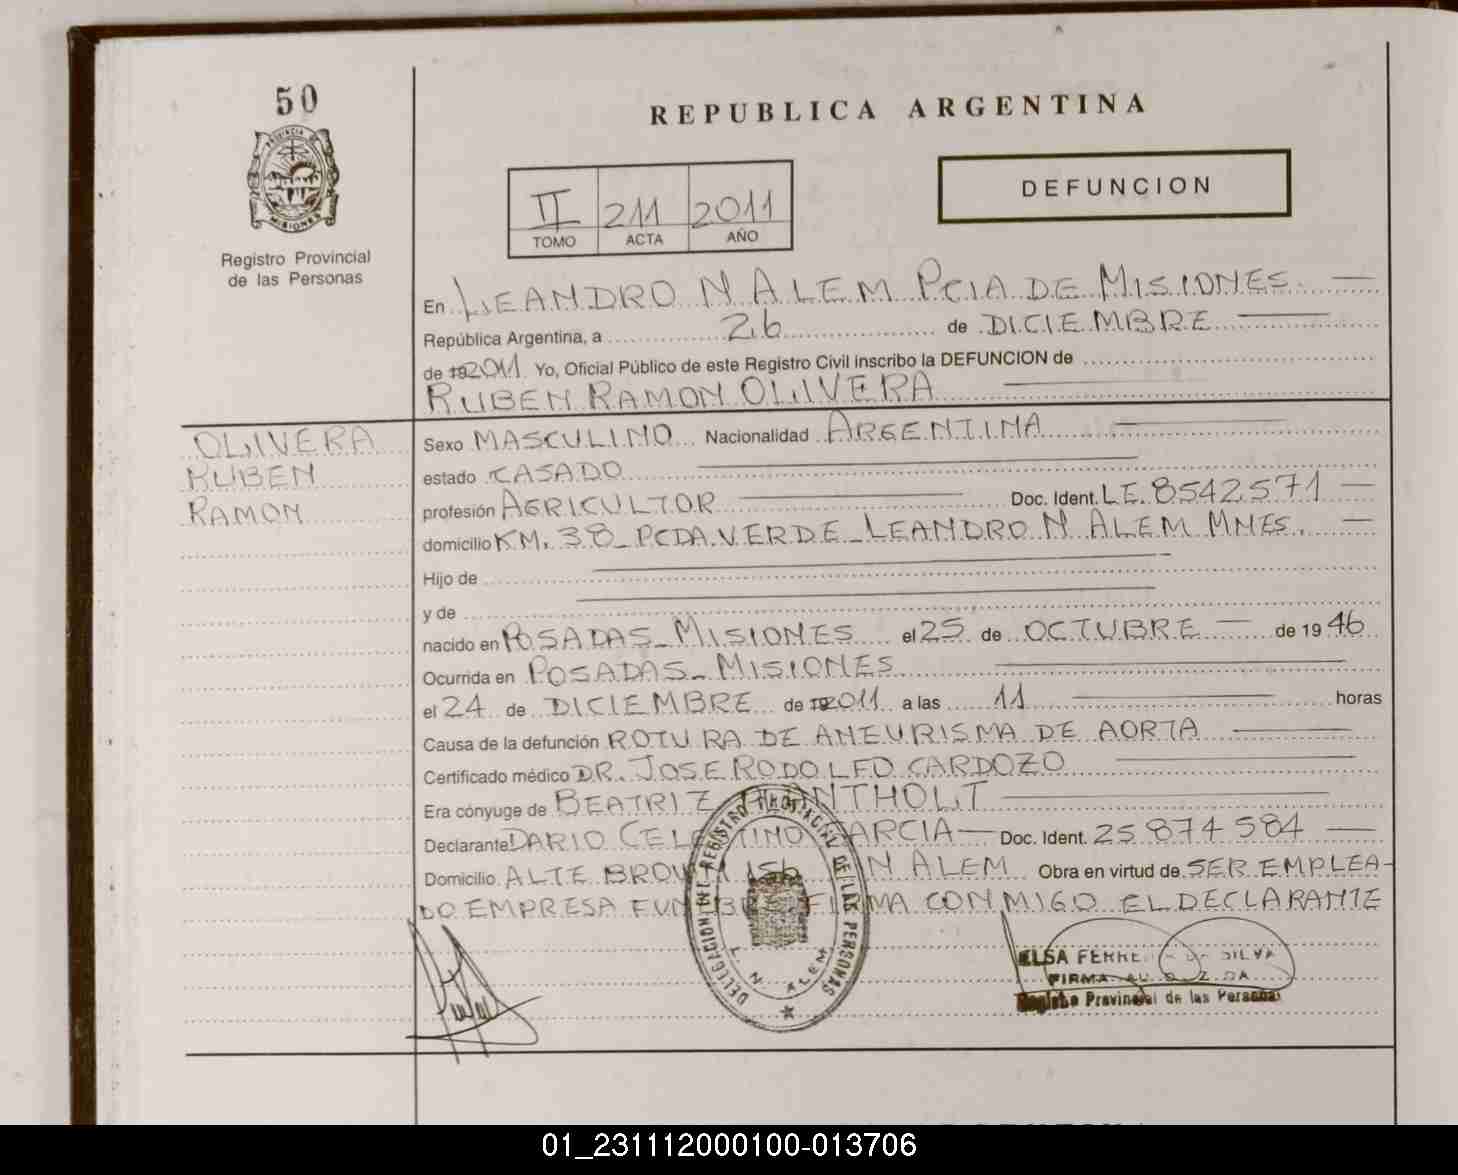 50
PROVINCIA DE
MISIONES
Registro Provincial
de las Personas
REPUBLICA ARGENTINA
II 211 2011
TOMO ACTA AÑO
DEFUNCION
En LEANDRO N ALEM PCIA DE MISIONES
República Argentina, a 26 de DICIEMBRE
de 192011 Yo, Oficial Público de este Registro Civil inscribo la DEFUNCION de
RUBEN RAMON OLIVERA
OLIVERA
RUBEN
RAMON
Sexo MASCULINO Nacionalidad ARGENTINA
estado CASADO
profesión AGRICULTOR Doc. Ident. LE. 8542571
domicilio KM. 38_ PCDA VERDE_LEANDRO N ALEM MNES.
Hijo de
y de
nacido en POSADAS_MISIONES el 25 de OCTUBRE de 1946
Ocurrida en POSADAS_MISIONES
el 24 de DICIEMBRE de 192011 a las 11 horas
Causa de la defunción ROTURA DE ANEURISMA DE AORTA
Certificado médico DR. JOSE RODOLFO CARDOZO
Era cónyuge de BEATRIZ
Declarante DARIO CELESTINO GARCIA Doc. Ident. 25874584
Domicilio ALTE BROWN 156 N ALEM Obra en virtud de SER EMPLEA-
DO EMPRESA FUNEBRE FIRMA CONMIGO EL DECLARANTE
DELEGACION DEL REGISTRO PROVINCIAL DE LAS PERSONAS
L. N. ALEM
ELSA SILVA
FIRMA
Registro Provincial de las Personas
01_231112000100-013706